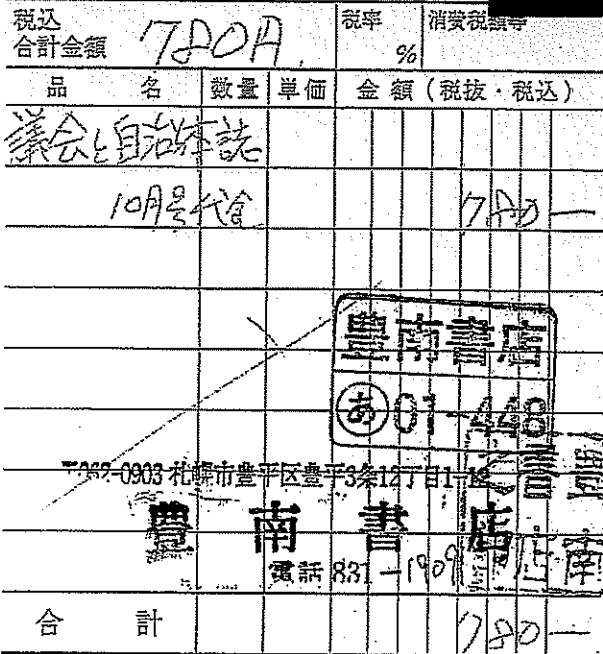 税込 合計金額 780円 税率 % 消費税額等
品 名 数量 単価 金額（税抜・税込）
議会と自治体誌
10月号代金 780－
豊南書店
あ 01-
〒062-0903 札幌市豊平区豊平3条12丁目1-12
豊南書店
電話 831-1909
合 計 780－